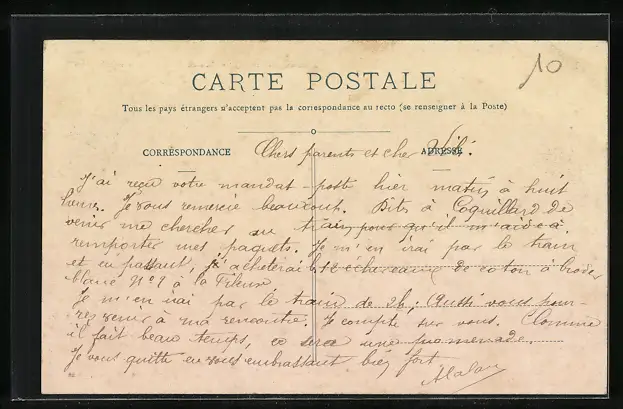 10
CARTE POSTALE
Tous les pays étrangers n'acceptent pas la correspondance au recto (se renseigner à la Poste)
CORRESPONDANCE
ADRESSE
Chers parents et cher
J'ai reçu votre mandat-poste hier matin à huit
heures. Je vous remercie beaucoup. Dites à Coquillard de
venir me chercher au train pour qu'il m'aide à
remporter mes paquets. Je m'en irai par le train
et en passant, j'achèterai écheveaux de coton à broder
blanc N° à la Fileuse
Je m'en irai par le train de 2h; Aussi vous pour-
rez venir à ma rencontre. Je compte sur vous. Comme
il fait beau temps, ce sera une promenade.
Je vous quitte en vous embrassant bien fort